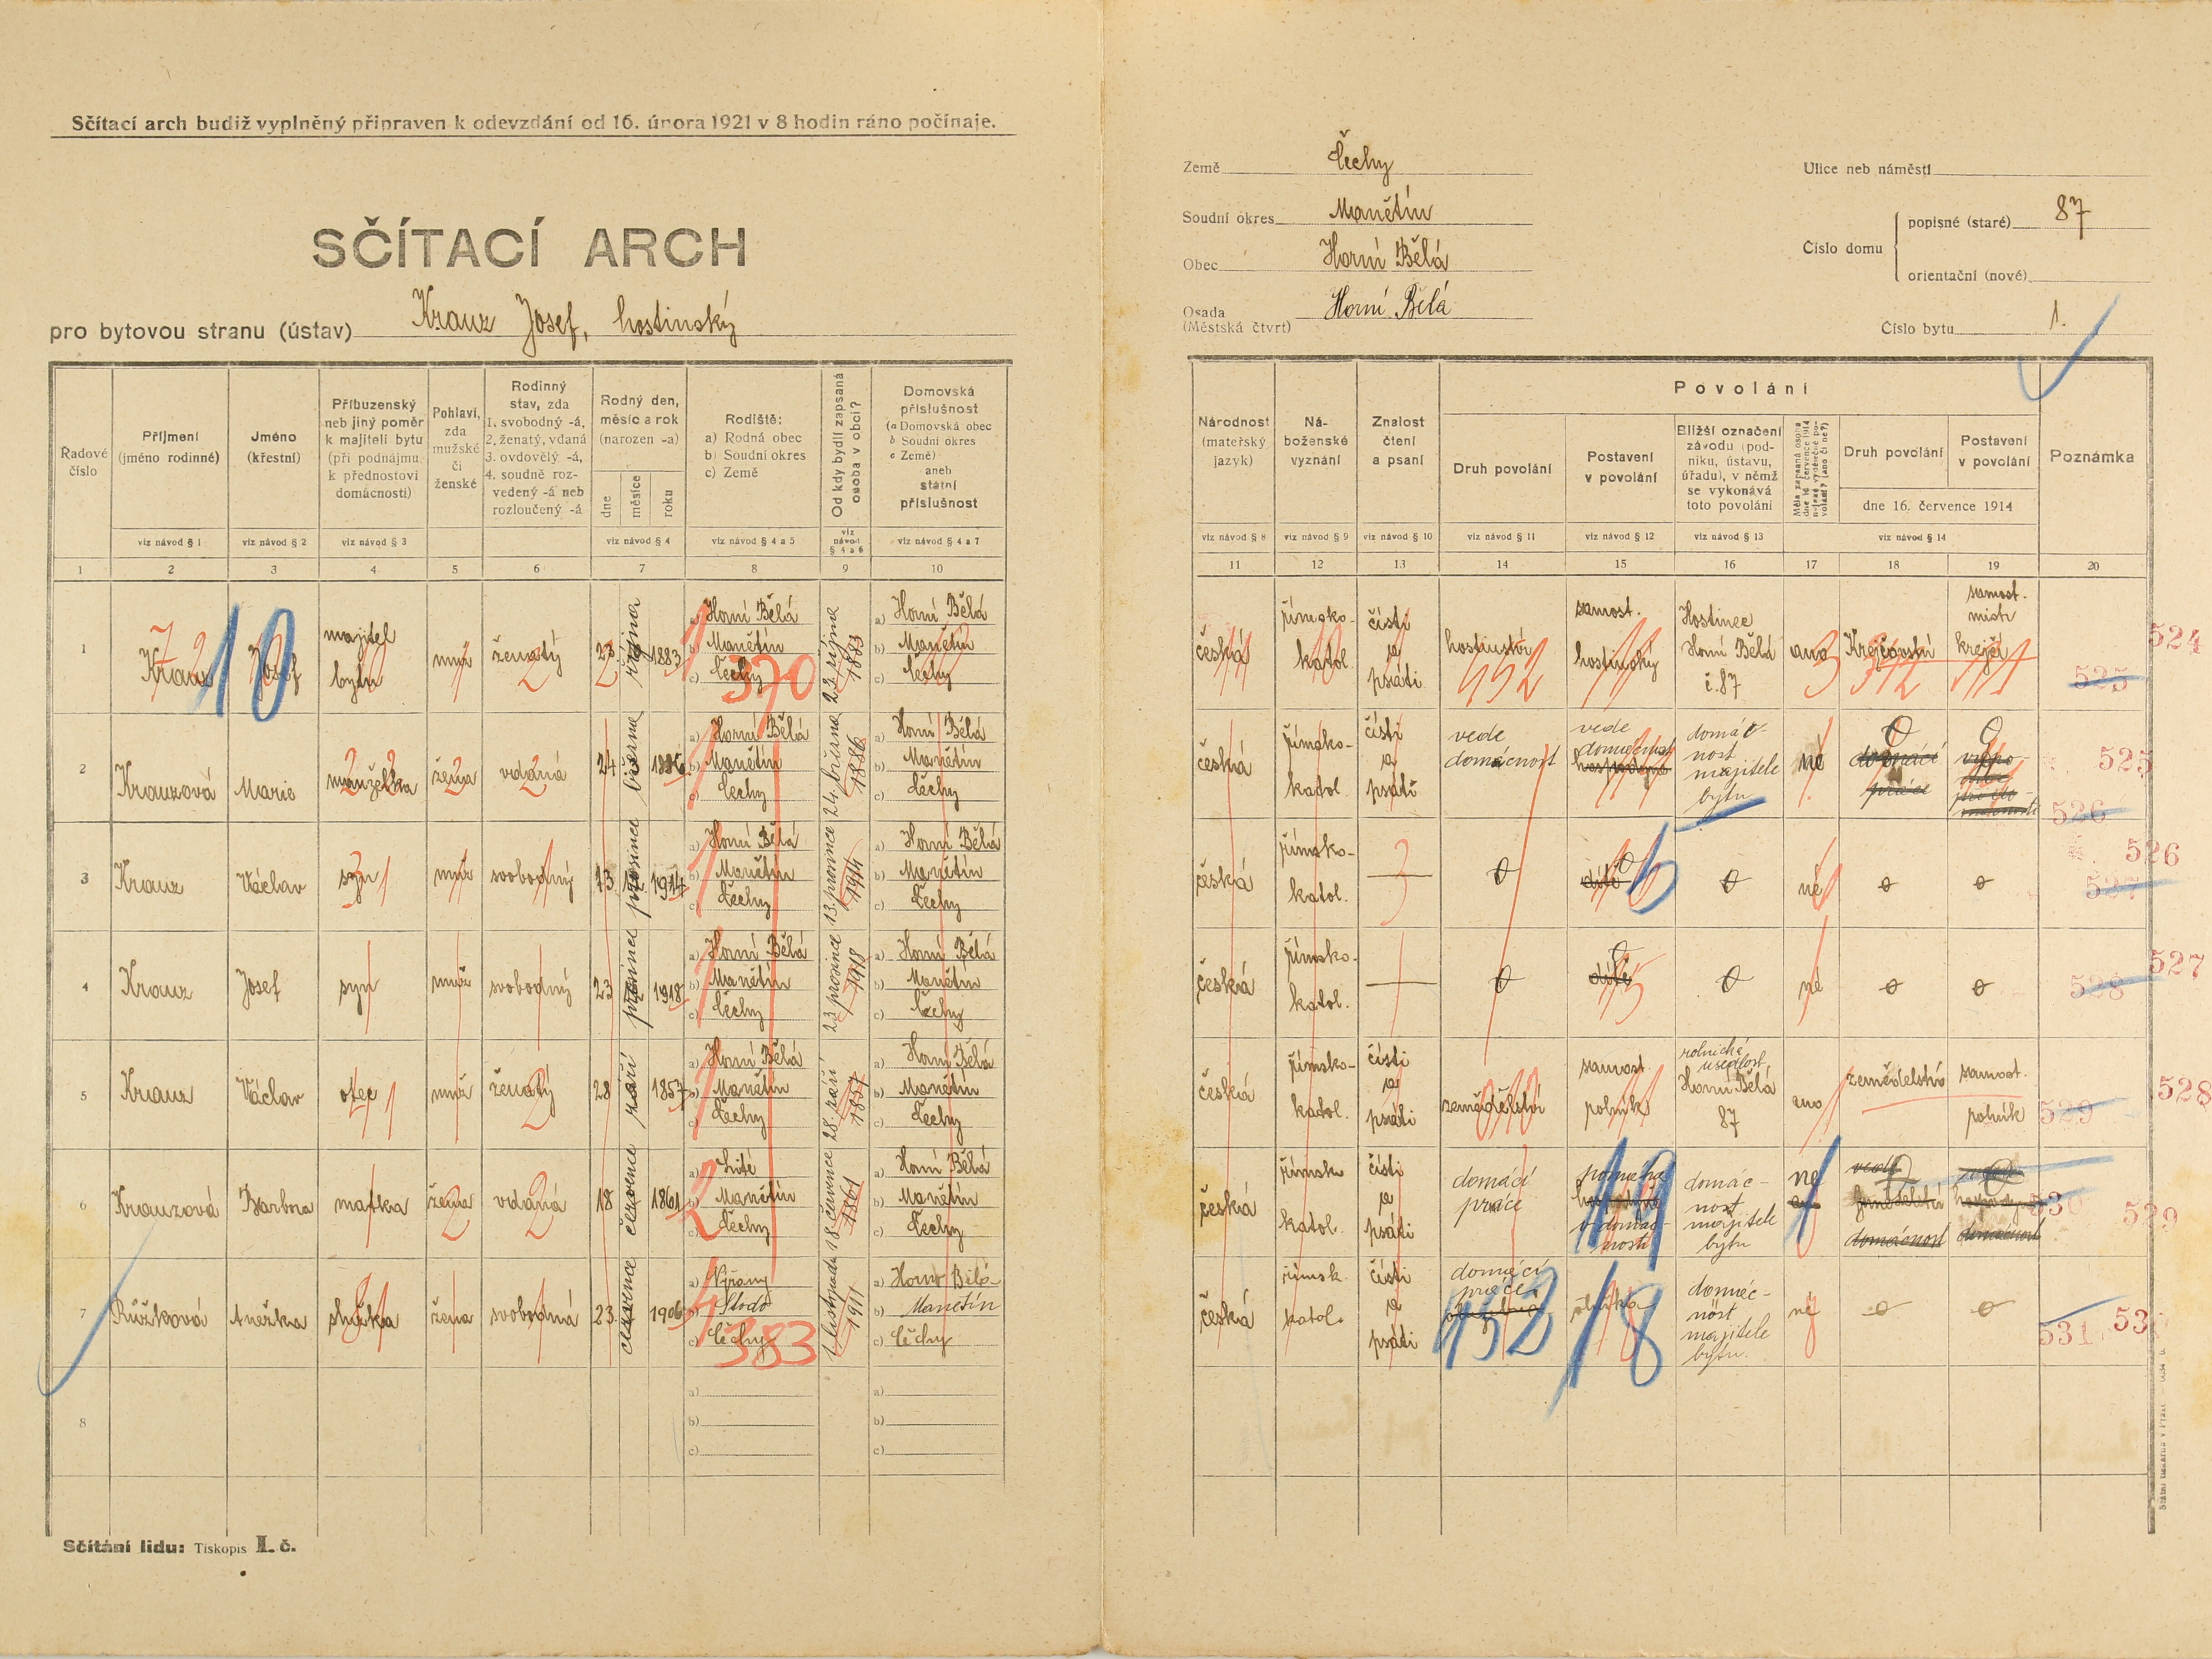 Sčítací arch budiž vyplněný připraven k odevzdání od 16. února 1921 v 8 hodin ráno počínaje.
SČÍTACÍ ARCH
pro bytovou stranu (ústav) Krauz Josef, hostinský
Země Čechy
Soudní okres Manětín
Obec Horní Bělá
Osada Horní Bělá
(Městská čtvrt)
Ulice neb náměstí
Číslo domu
popisné (staré) 87
orientační (nové)
Číslo bytu 1.
Řadové číslo
Příjmení (jméno rodinné)
viz návod § 1
Jméno (křestní)
viz návod § 2
Příbuzenský neb jiný poměr k majiteli bytu (při podnájmu k přednostovi domácnosti)
viz návod § 3
Pohlaví, zda mužské či ženské
Rodinný stav, zda
1. svobodný -á,
2. ženatý, vdaná
3. ovdovělý -á,
4. soudně rozvedený -á neb rozloučený -á
Rodný den, měsíc a rok (narozen -a)
dne
měsíce
roku
viz návod § 4
Rodiště:
a) Rodná obec
b) Soudní okres
c) Země
viz návod § 4 a 5
Od kdy bydlí zapsaná osoba v obci?
viz návod § 4 a 6
Domovská příslušnost
(a Domovská obec
b Soudní okres
c Země)
aneb
státní
příslušnost
viz návod § 4 a 7
Národnost (mateřský jazyk)
viz návod § 8
Náboženské vyznání
viz návod § 9
Znalost čtení a psaní
viz návod § 10
Povolání
Druh povolání
viz návod § 11
Postavení v povolání
viz návod § 12
Bližší označení závodu (podniku, ústavu, úřadu), v němž se vykonává toto povolání
viz návod § 13
Druh povolání
Postavení v povolání
dne 16. července 1914
viz návod § 14
Poznámka
1 2 3 4 5 6 7 8 9 10 11 12 13 14 15 16 17 18 19 20
1 Krauz Josef majitel bytu muž ženatý 23 října 1883 a) Horní Bělá b) Manětín c) Čechy 23. října 1883 a) Horní Bělá b) Manětín c) Čechy
česká římsko-katol. čísti a psáti hostinství samost. hostinský Hostinec Horní Bělá č. 87 ano Krejčovství samost. mistr krejčí
10 370 524 525
2 Krauzová Marie manželka žena vdaná 24 března 1886 a) Horní Bělá b) Manětín c) Čechy 24. března 1886 a) Horní Bělá b) Manětín c) Čechy
česká římsko-katol. čísti a psáti vede domácnost vede domácnost domácnost majitele bytu né
525 526
3 Krauz Václav syn muž svobodný 13 prosince 1914 a) Horní Bělá b) Manětín c) Čechy 13. prosince 1914 a) Horní Bělá b) Manětín c) Čechy
česká římsko-katol. — 0 dítě 0 né 0 0
526 527
4 Krauz Josef syn muž svobodný 23 prosince 1918 a) Horní Bělá b) Manětín c) Čechy 23 prosince 1918 a) Horní Bělá b) Manětín c) Čechy
česká římsko-katol. — 0 dítě 0 né 0 0
527 528
5 Krauz Václav otec muž ženatý 28 září 1857 a) Horní Bělá b) Manětín c) Čechy 28. září 1857 a) Horní Bělá b) Manětín c) Čechy
česká římsko-katol. čísti a psáti zemědělství samost. rolník rolnická usedlost Horní Bělá 87 ano zemědělství samost. rolník
528 529
6 Krauzová Barbora matka žena vdaná 18 července 1861 a) Lité b) Manětín c) Čechy 18. července 1861 a) Horní Bělá b) Manětín c) Čechy
česká římsko katol. čísti a psáti domácí práce pomáhá v domácnosti domácnost majitele bytu ne domácnost domácnost
19 529 530
7 Růžková Anežka služka žena svobodná 23 července 1906 a) Nýřany b) Stodo c) Čechy 1. listopadu 1911 a) Horní Bělá b) Manětín c) Čechy
česká římsk. katol. čísti a psáti domácí práce služka domácnost majitele bytu. né 0 0
383 452 18 531 53
8 a) b) c) a) b) c)
Sčítání lidu: Tiskopis I. č.